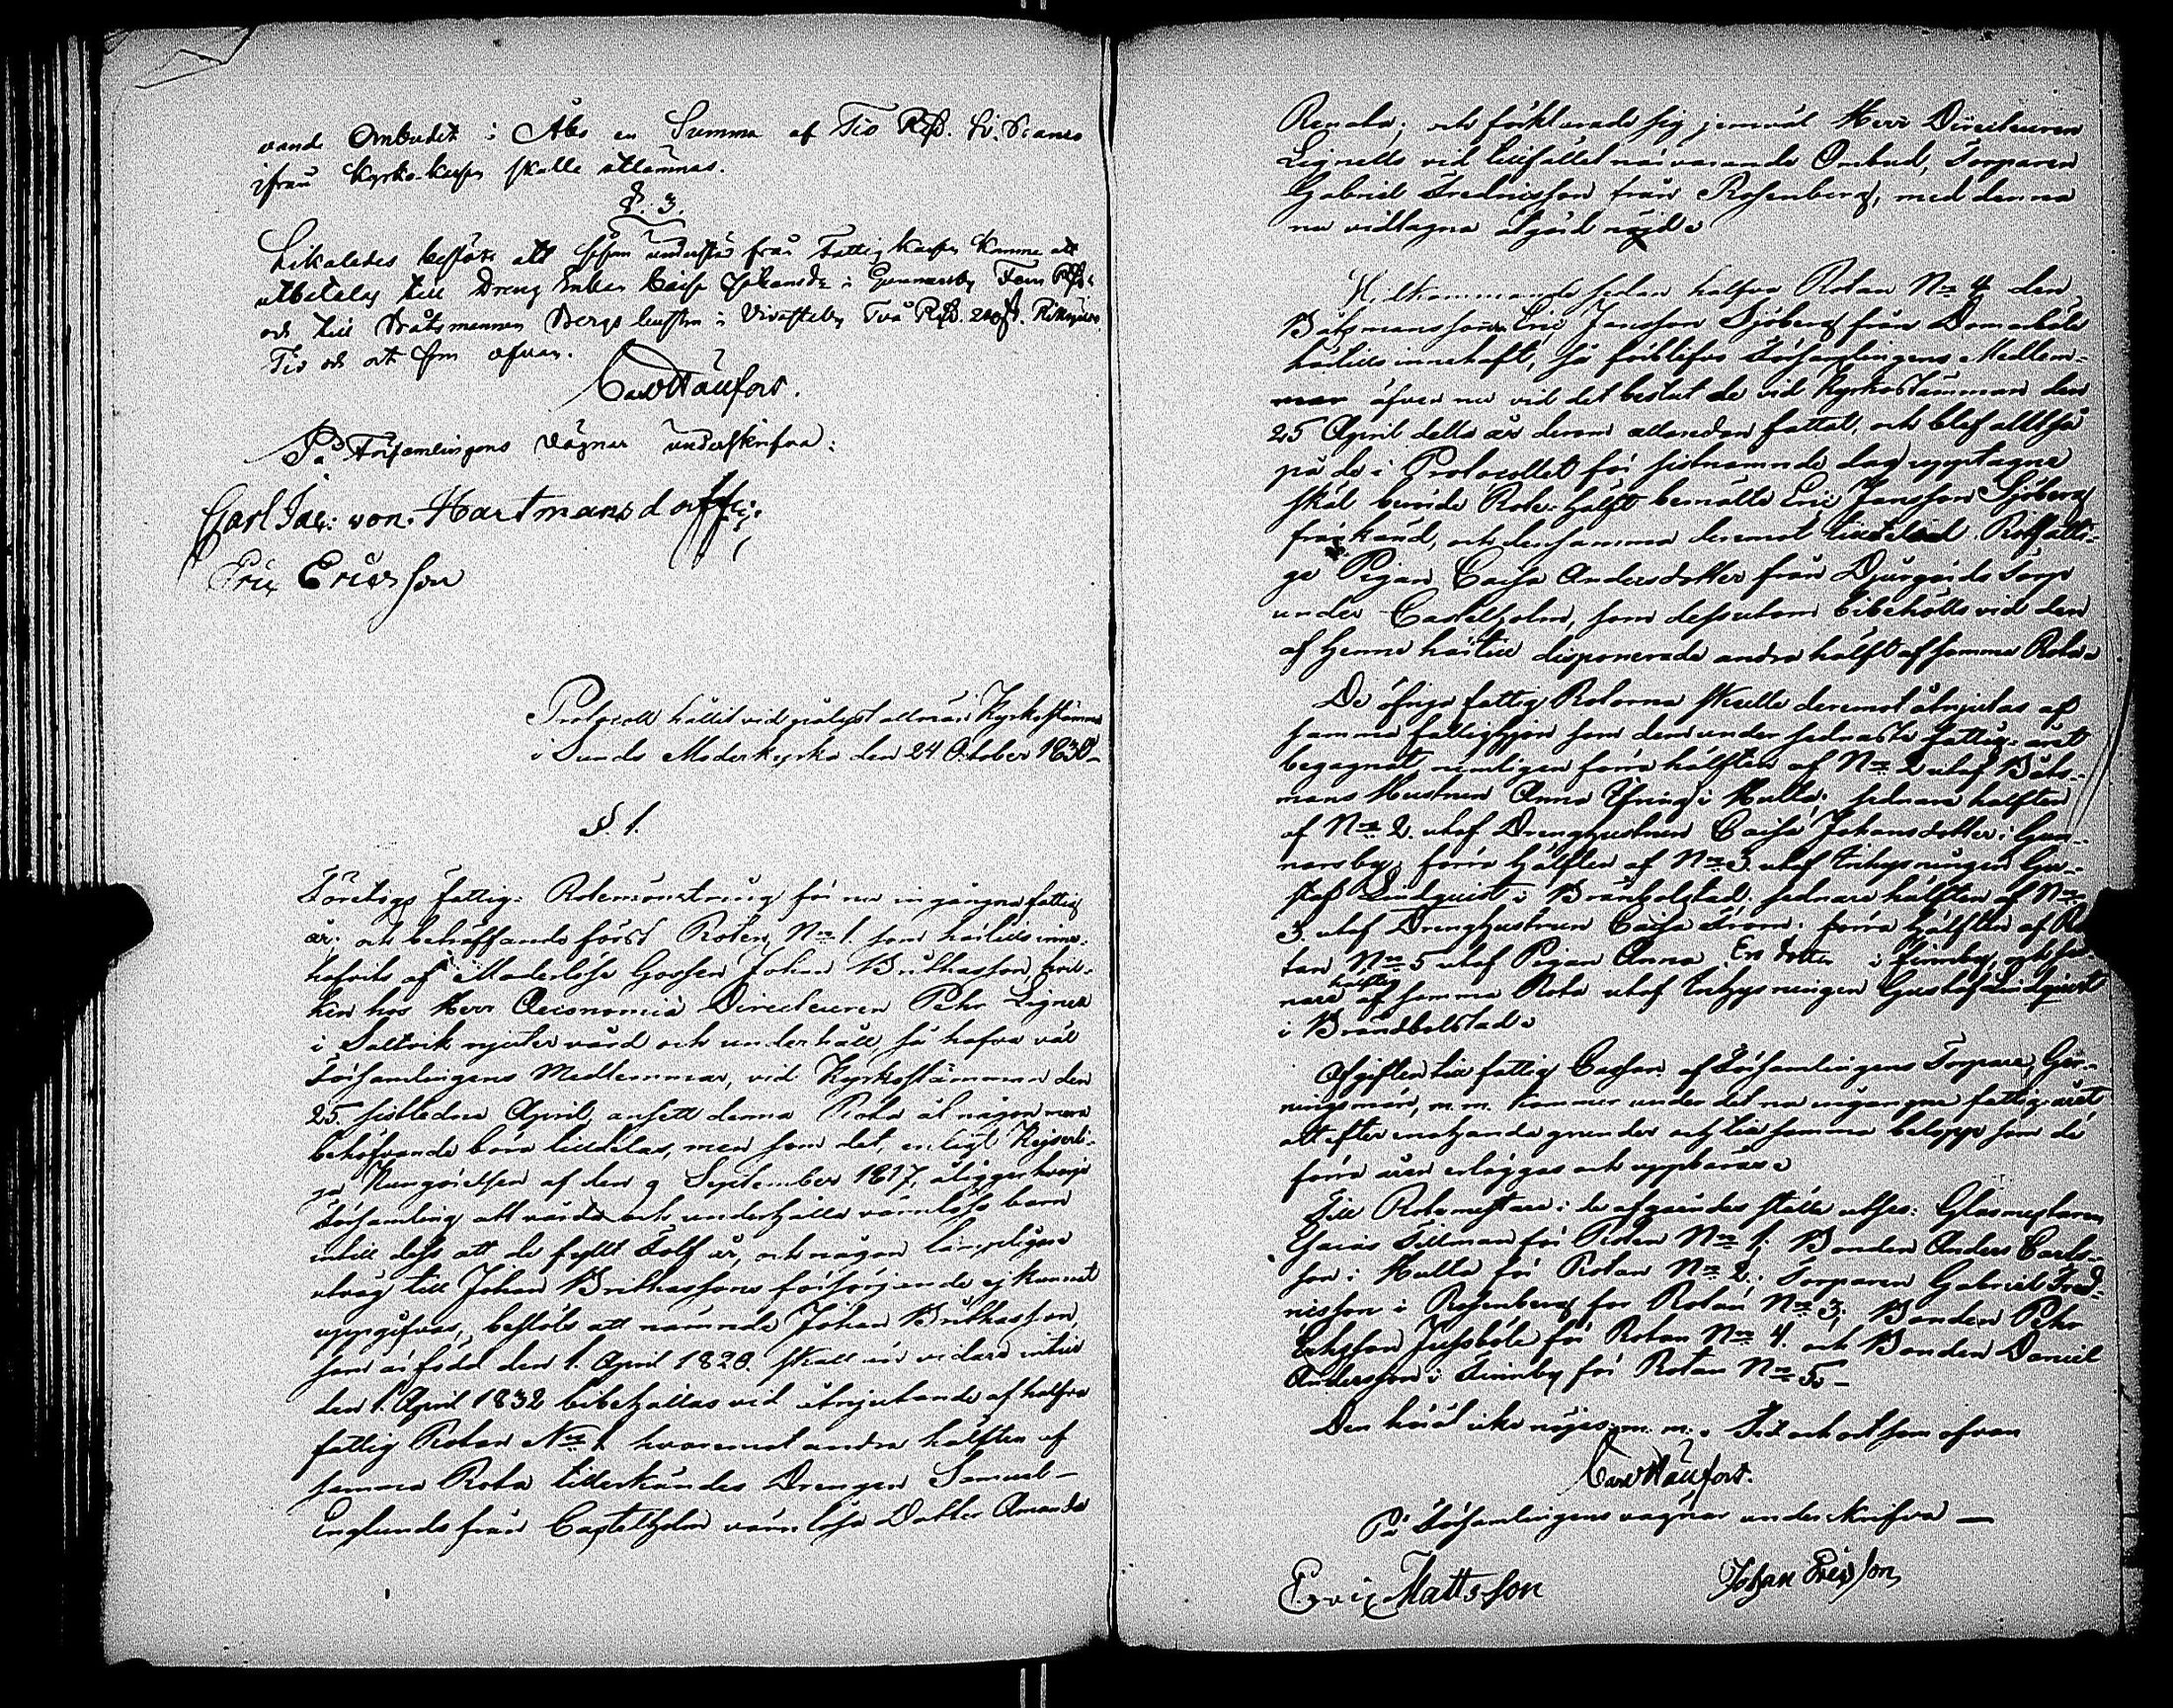 vande Ombudet i Åbo en Summa af Tio Rub. B. Banco
ifrån Kyrko-kassan skulle utlämnas.
§. 3.
Likaledes beslöts att såsom understöd från Fattig kassan komme att
utbetalas till Dreng Enkan Caisa Johansdr i Gunnarsby Fem
och till Båtsmannen Bergs hustru i Vivasteby Två
Tid och ort som ofvan.
På Församlingens vägnar underskrifva:
Carl Jac: von Hartmansdorff.
Eric Ericsson
Protocoll hållit vid pålyst allmän Kyrkostämma
i Sunds Moderkyrka den 24 October 1830
§. 1.
Företogs fattig-Rotemönstring för nu ingångna fattig
år; och beträffande först Roten No 1. som härtills inne-
hafvits af Moderlöse Gossen Johan Brithasson, hvil-
ken hos Herr Oeconomie Directeuren Pehr Lignell
i Saltvik njuter vård och underhåll, så hafva väl
Församlingens Medlemmar, vid Kyrkostämman den
25. sistledne April, ansett denna Rota åt någon mera
behöfvande böra tilldelas, men som det, enligt Kejserli-
ga Kungörelsen af den 9 September 1817, åligger hvarje
Församling att vårda och underhålla värnlösa barn
intill dess att de fyllt Tolf år, och någon lämpligare
utväg till Johan Brithassons försörjande ej kunnat
uppgifvas, beslöts att nämnde Johan Brithasson,
som är född den 1. April 1820. skall än vidare intill
den 1. April 1832 bibehållas vid åtnjutande af halfva
fattig Rotan No 1 hvaremot andra hälften af
samma Rota tillerkändes Drengen Samuel
Englunds från Castelholm värnlösa Dotter Amanda
Renata; och förklarade sig jemväl Herr Directeuren
Lignells vid tillfället närvarande Ombud, Torparen
Gabriel Fredricsson från Rosenberg, med denna
nu vidtagna åtgärd nöjd.
Vidkommande sedan halfva Rotan No 4 den
Båtsmanssonen Eric Jansson Sjöberg från Domarböle
härtills innehaft, så förblifva Församlingens Medlem-
mar äfven nu vid det beslut de vid Kyrkostämman den
25 April detta år derom allaredan fattat, och blef alltså
på de i Protocollet för sistnämnde dag upptagne
skäl berörde Rote-hälft bemälte Eric Jansson Sjöberg
frånkänd, och densamma deremot tilldelad Rotfatti-
ga Pigan Caisa Andersdotter från Djurgårds Torp
under Castelholm, som dessutom bibehölls vid den
af henne härtill disponerade andra hälft af samma Rota.
De öfriga fattig Rotorna skulle deremot åtnjutas af
samma fattighjon som dem under sednaste fattig-året
begagnat nemligen förra hälften af No 2 utaf Båts-
mans Hustrun Anna i Hulta; sednare hälften
af No 2. utaf Drenghustrun Caisa Johansdotter i Gun-
narsby; förra hälften af No 3. utaf Inhysningen Gu-
staf Lindquist i Brändbolstad; sednare hälften af No
3. utaf Drenghustrun Caisa; förra hälften af Ro
tan No 5 utaf Pigan Anna Ersdotter i Finnby, och sed-
nare hälften af samma Rota utaf Inhysningen Gustaf Lindquist
i Brändbolstad.
Afgiften till fattig Cassan af Församlingens Torpare, Ger-
ningsmän, m.m. kommer under det nu ingångna fattig-året
att efter enahanda grunder och till samma belopp som de
förra åren erläggas och uppbäras.
Till Rotemästare i de afgåendes ställe utses: Glasmästaren
Tillman för Rotan No 1; Bonden Anders Carls-
son i Hulta för Rotan No 2; Torparen Gabriel Fred-
ricsson i Rosenberg för Rotan No 3; Bonden Pehr
Ericsson Jussböle för Rotan No 4. och Bonden Daniel
Andersson i Finnby för Rotan No 5.
Den härål icke nöjes m.m. Tid och ort som ofvan
På Församlingens vägnar underskrifva
Eric Mattsson Johan Ericsson